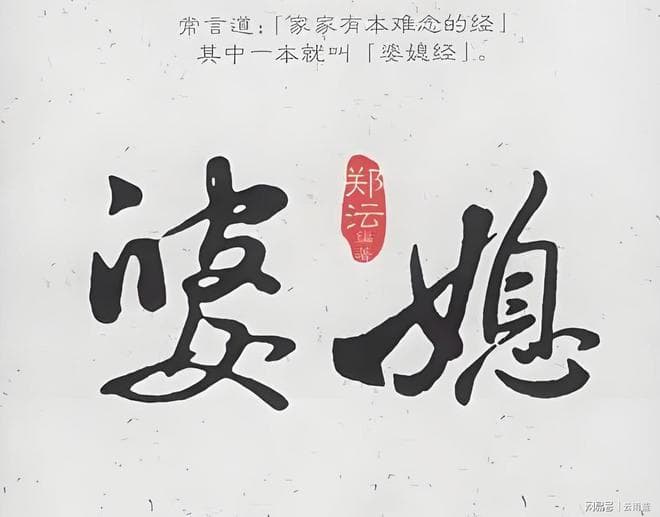 常言道：「家家有本难念的经」
其中一本就叫「婆媳经」。
婆媳
郑沄
编著
网易号 | 云雨蓝